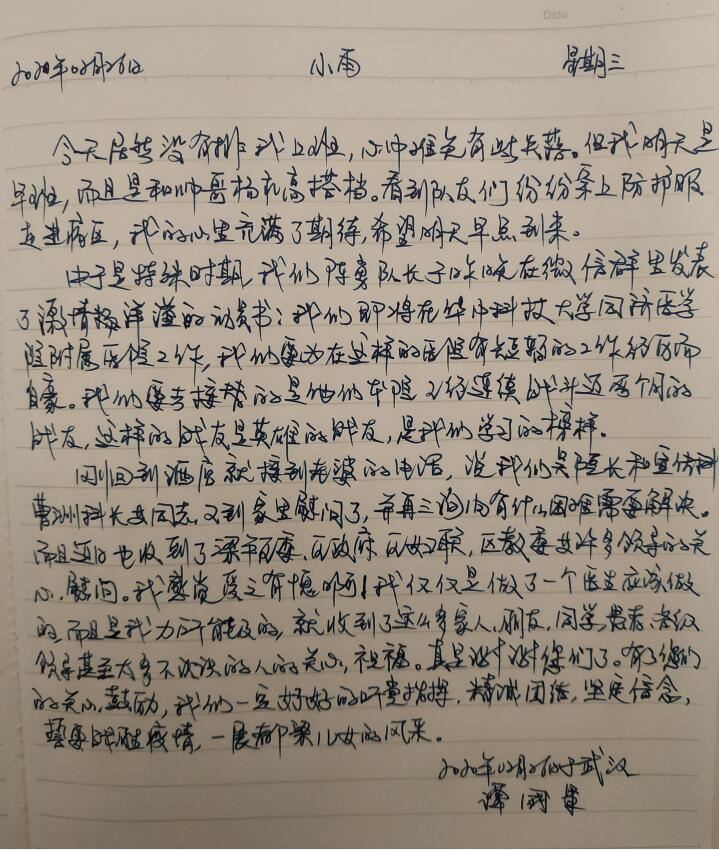 Date
2020年02月26日 小雨 星期三
今天居然没有排我上班，心中难免有些失落。但我明天是
早班，而且是和帅哥杨礼高搭档。看到队友们纷纷穿上防护服
走进病区，我的心里充满了期待，希望明天早点到来。
由于是特殊时期，我们陈勇队长于昨晚在微信群里发表
了激情洋溢的动员书：我们即将在华中科技大学同济医学
院附属医院工作，我们要为在这样的医院有短暂的工作经历而
自豪。我们要去接替的是他们本院已经连续战斗近两个月的
战友，这样的战友是英雄的战友，是我们学习的榜样。
刚回到酒店就接到老婆的电话，说我们吴院长和宣传科
曹科长等同志又到家里慰问了，并再三询问有什么困难需要解决。
而且近日也收到了梁平区委、区政府、区妇联，区教委等许多领导的关
心、慰问。我感觉受之有愧啊！我仅仅是做了一个医生应该做
的，而且是我力所能及的，就收到了这么多家人、朋友、同学、各级
领导甚至大多不认识的人的关心，祝福。真是谢谢您们了。有了您们
的关心，鼓励，我们一定好好的听党指挥，精诚团结，坚定信念，
誓要战胜疫情，一展都梁儿女的风采。
2020年02月26日于武汉
谭